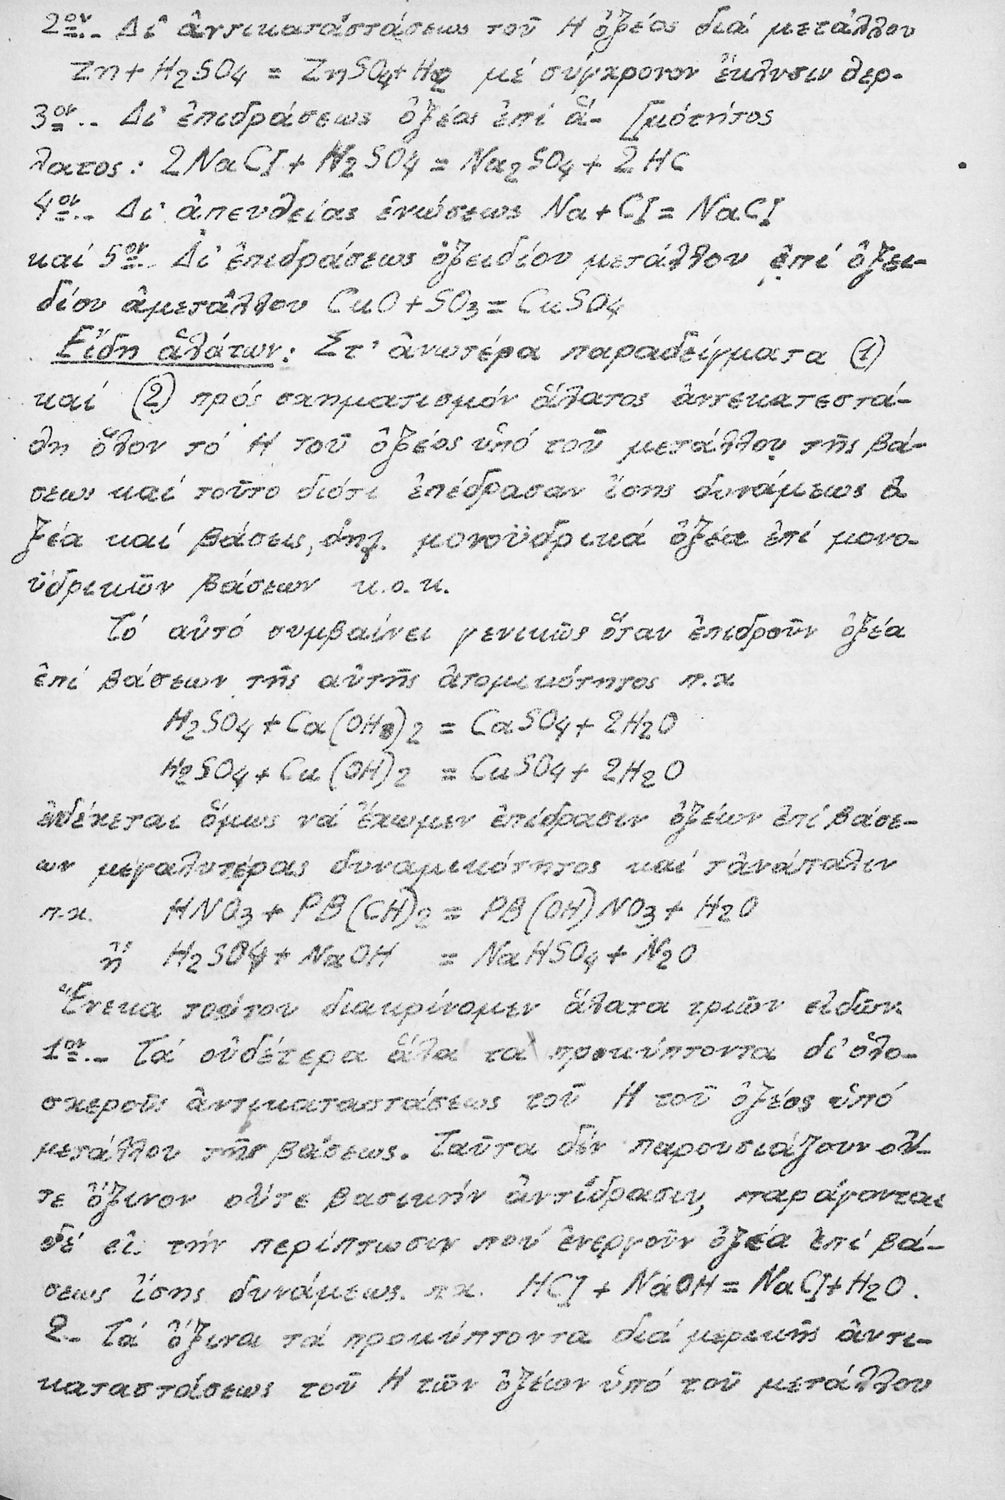 2ον.- Δι' ἀντικαταστάσεως τοῦ Η ὀξέος διά μετάλλου
Zn + H2SO4 = ZnSO4 + H2 μέ σύγχρονον ἔκλυσιν θερ-
3ον.- Δι' ἐπιδράσεως ὀξέος ἐπί ἅ- [μότητος
λατος: 2NaCI + H2SO4 = Na2SO4 + 2HC
4ον.- Δι' ἀπευθείας ἑνώσεως Na + CI = NaCI
καί 5ον.- Δι' ἐπιδράσεως ὀξειδίου μετάλλου ἐπί ὀξει-
δίου ἀμετάλλου CuO + SO3 = CuSO4
Εἴδη ἁλάτων: Στ' ἀνωτέρα παραδείγματα (1)
καί (2) πρός σχηματισμόν ἅλατος ἀντεκατεστά-
θη ὅλον τό Η τοῦ ὀξέος ὑπό τοῦ μετάλλου τῆς βά-
σεως καί τοῦτο διότι ἐπέδρασαν ἴσης δυνάμεως ὀ
ξέα καί βάσεις, δηλ. μονοϋδρικά ὀξέα ἐπί μονο-
ϋδρικῶν βάσεων κ.ο.κ.
Τό αὐτό συμβαίνει γενικῶς ὅταν ἐπιδροῦν ὀξέα
ἐπί βάσεων τῆς αὐτῆς ἀτομικότητος π.χ
H2SO4 + Ca(OH)2 = CaSO4 + 2H2O
H2SO4 + Cu(OH)2 = CuSO4 + 2H2O
ἐνδέχεται ὅμως νά ἔχωμεν ἐπίδρασιν ὀξέων ἐπί βάσε-
ων μεγαλυτέρας δυναμικότητος καί τἀνάπαλιν
π.χ. HNO3 + PB(CH)2 = PB(OH)NO3 + H2O
ἤ H2SO4 + NaOH = NaHSO4 + N2O
Ἕνεκα τούτου διακρίνομεν ἅλατα τριῶν εἰδῶν.
1ον.- Τά οὐδέτερα ἅλα τά προκύπτοντα δι' ὁλο-
σχεροῦς ἀντικαταστάσεως τοῦ Η τοῦ ὀξέος ὑπό
μετάλλου τῆς βάσεως. Ταῦτα δέν παρουσιάζουν οὔ-
τε ὄξινον οὔτε βασικήν ἀντίδρασιν, παράγονται
δέ εἰ. τήν περίπτωσιν πού ἐνεργοῦν ὀξέα ἐπί βά-
σεως ἴσης δυνάμεως. π.χ. HCI + NaOH = NaCI + H2O.
2.- Τά ὄξινα τά προκύπτοντα διά μερικῆς ἀντι-
καταστάσεως τοῦ Η τῶν ὀξέων ὑπό τοῦ μετάλλου